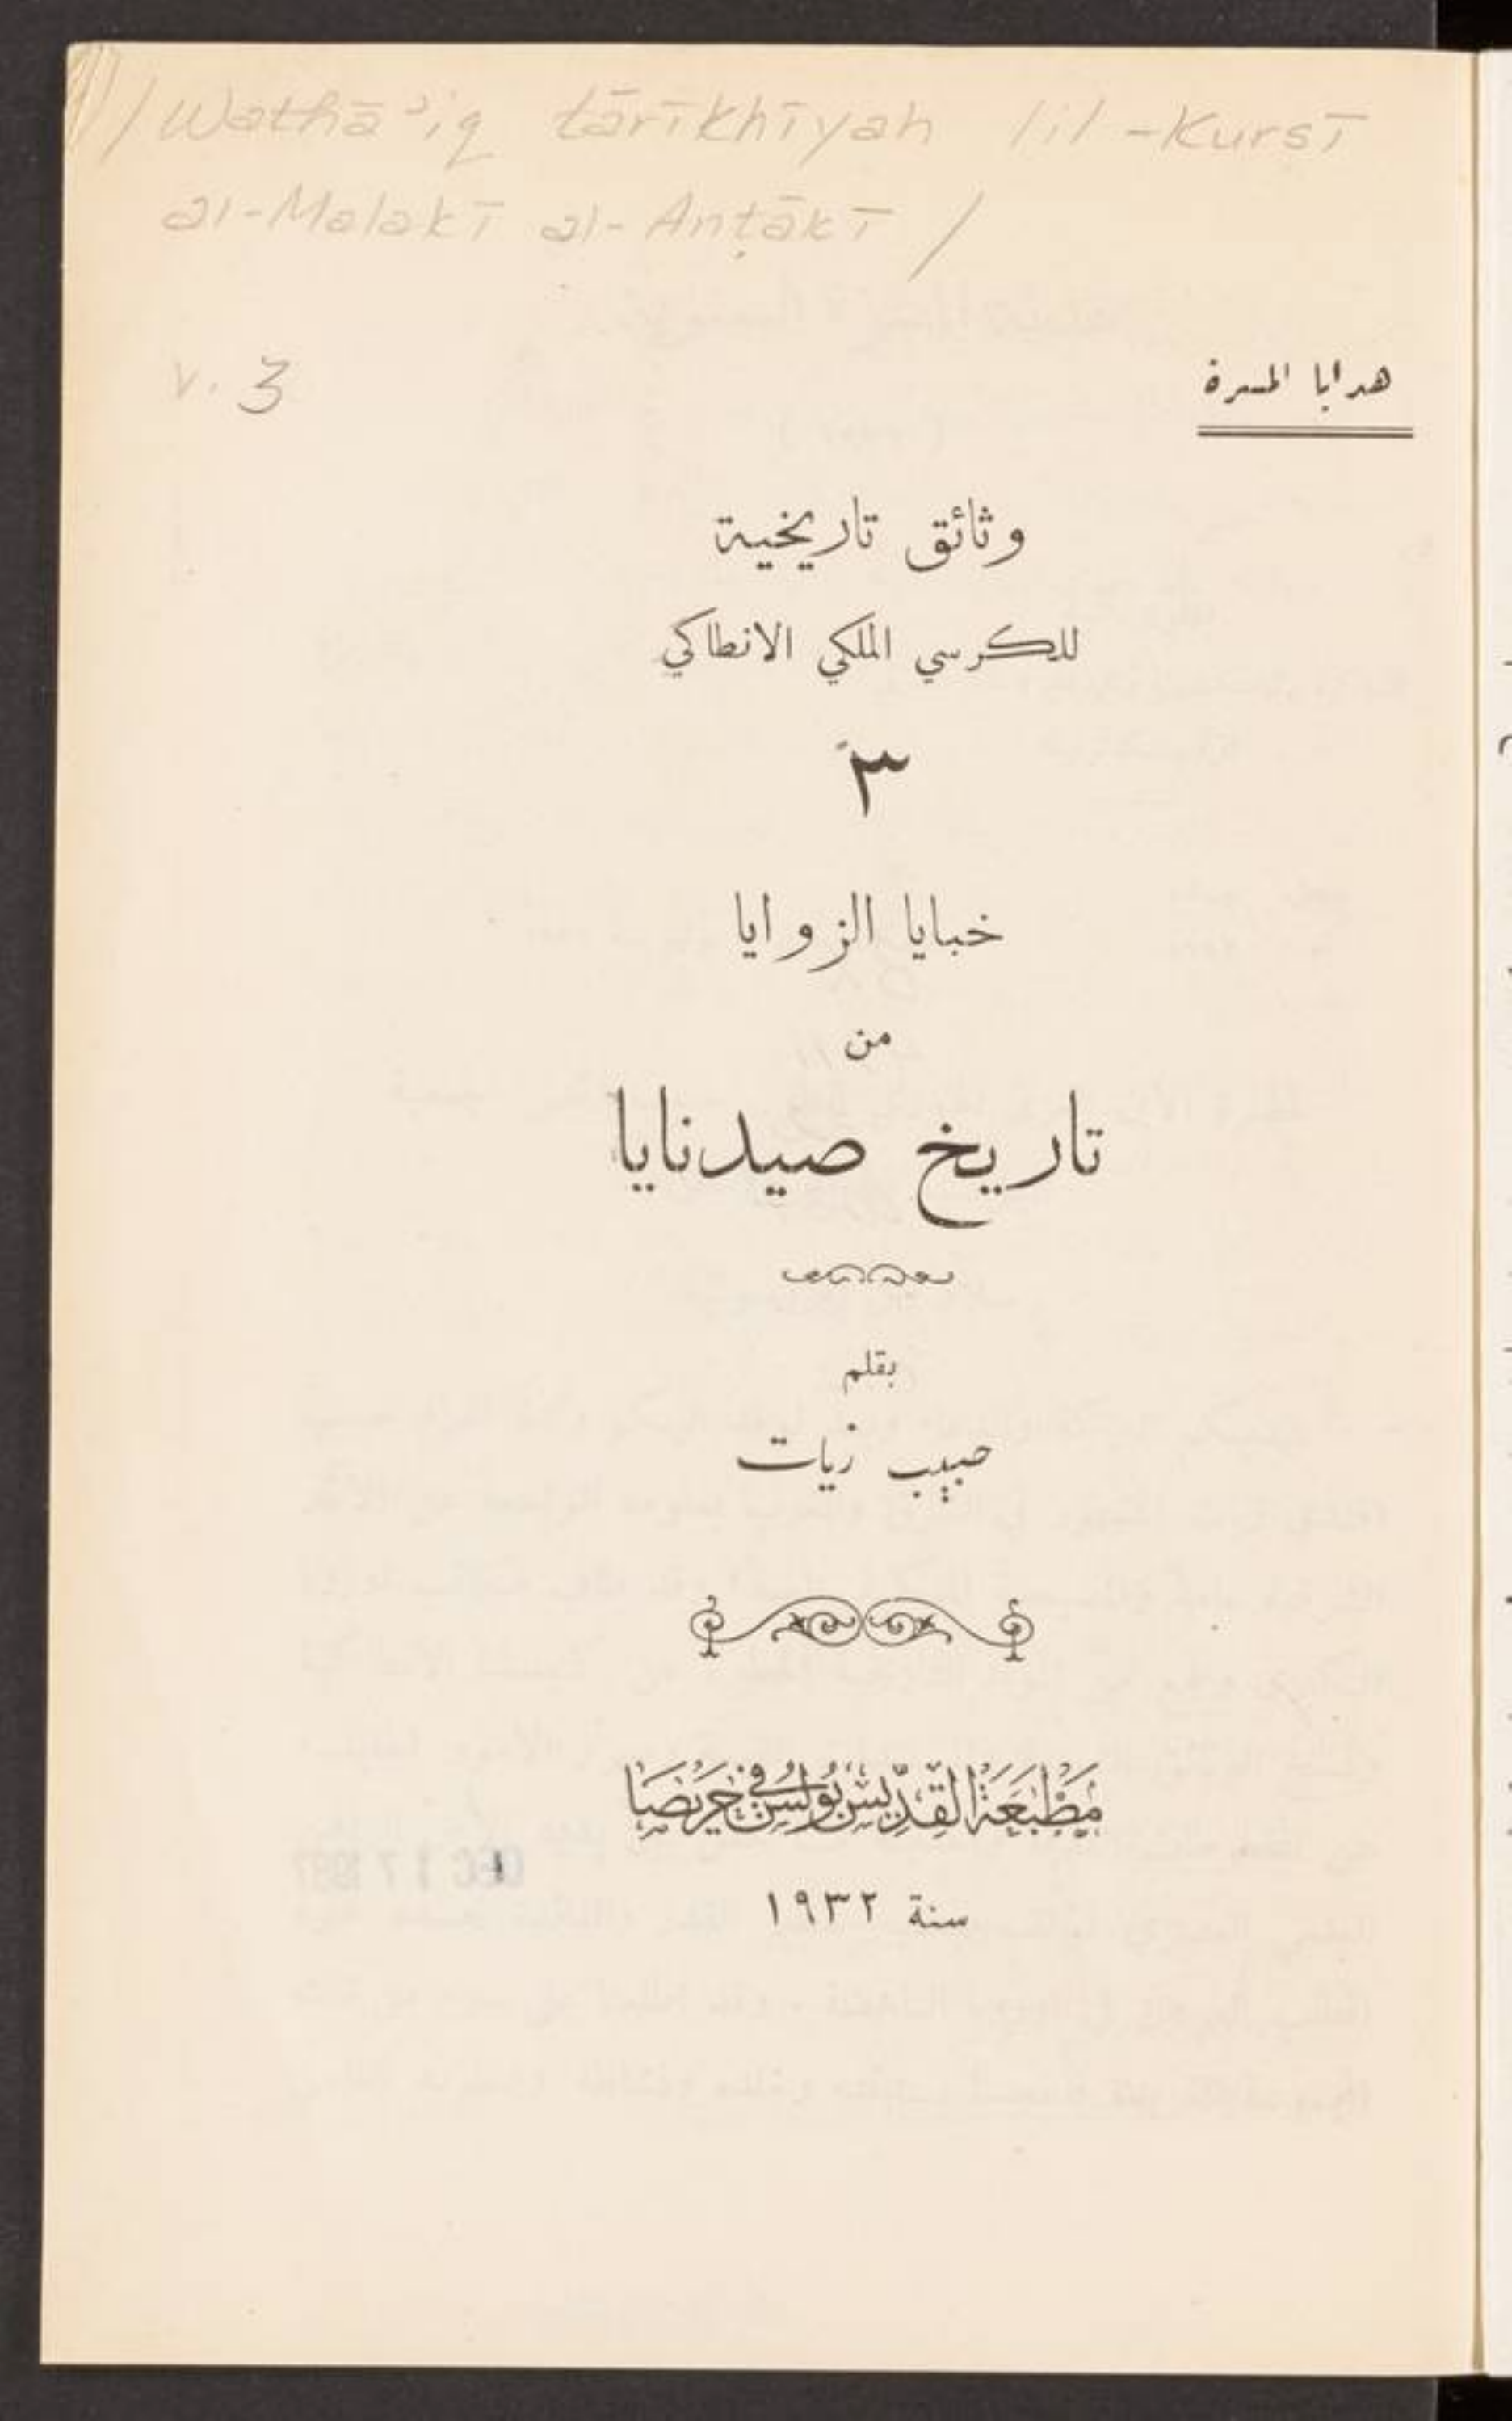 / Wathā'iq tārīkhīyah lil-Kursī
al-Malakī al-Anṭākī /
v. 3
هدايا المسرة
وثائق تاريخية
للكرسي الملكي الانطاكي
٣
خبايا الزوايا
من
تاريخ صيدنايا
بقلم
حبيب زيات
مَطْبَعَة القِدِّيسْ بُولُسْ في حَرِيْصَا
سنة ١٩٣٢